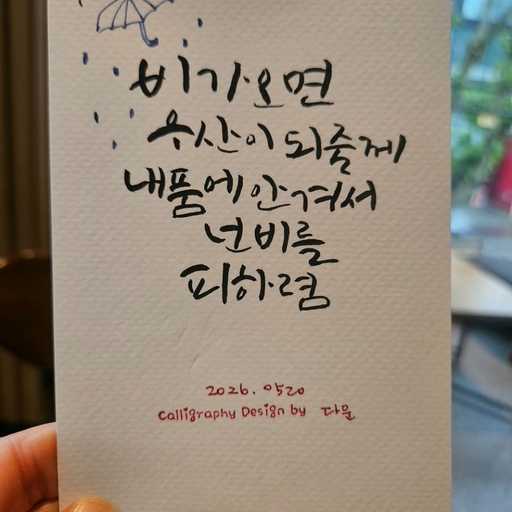 비가오면
우산이 되줄께
내품에 안겨서
넌 비를
피하렴
2026. 0520
Calligraphy Design by 다운